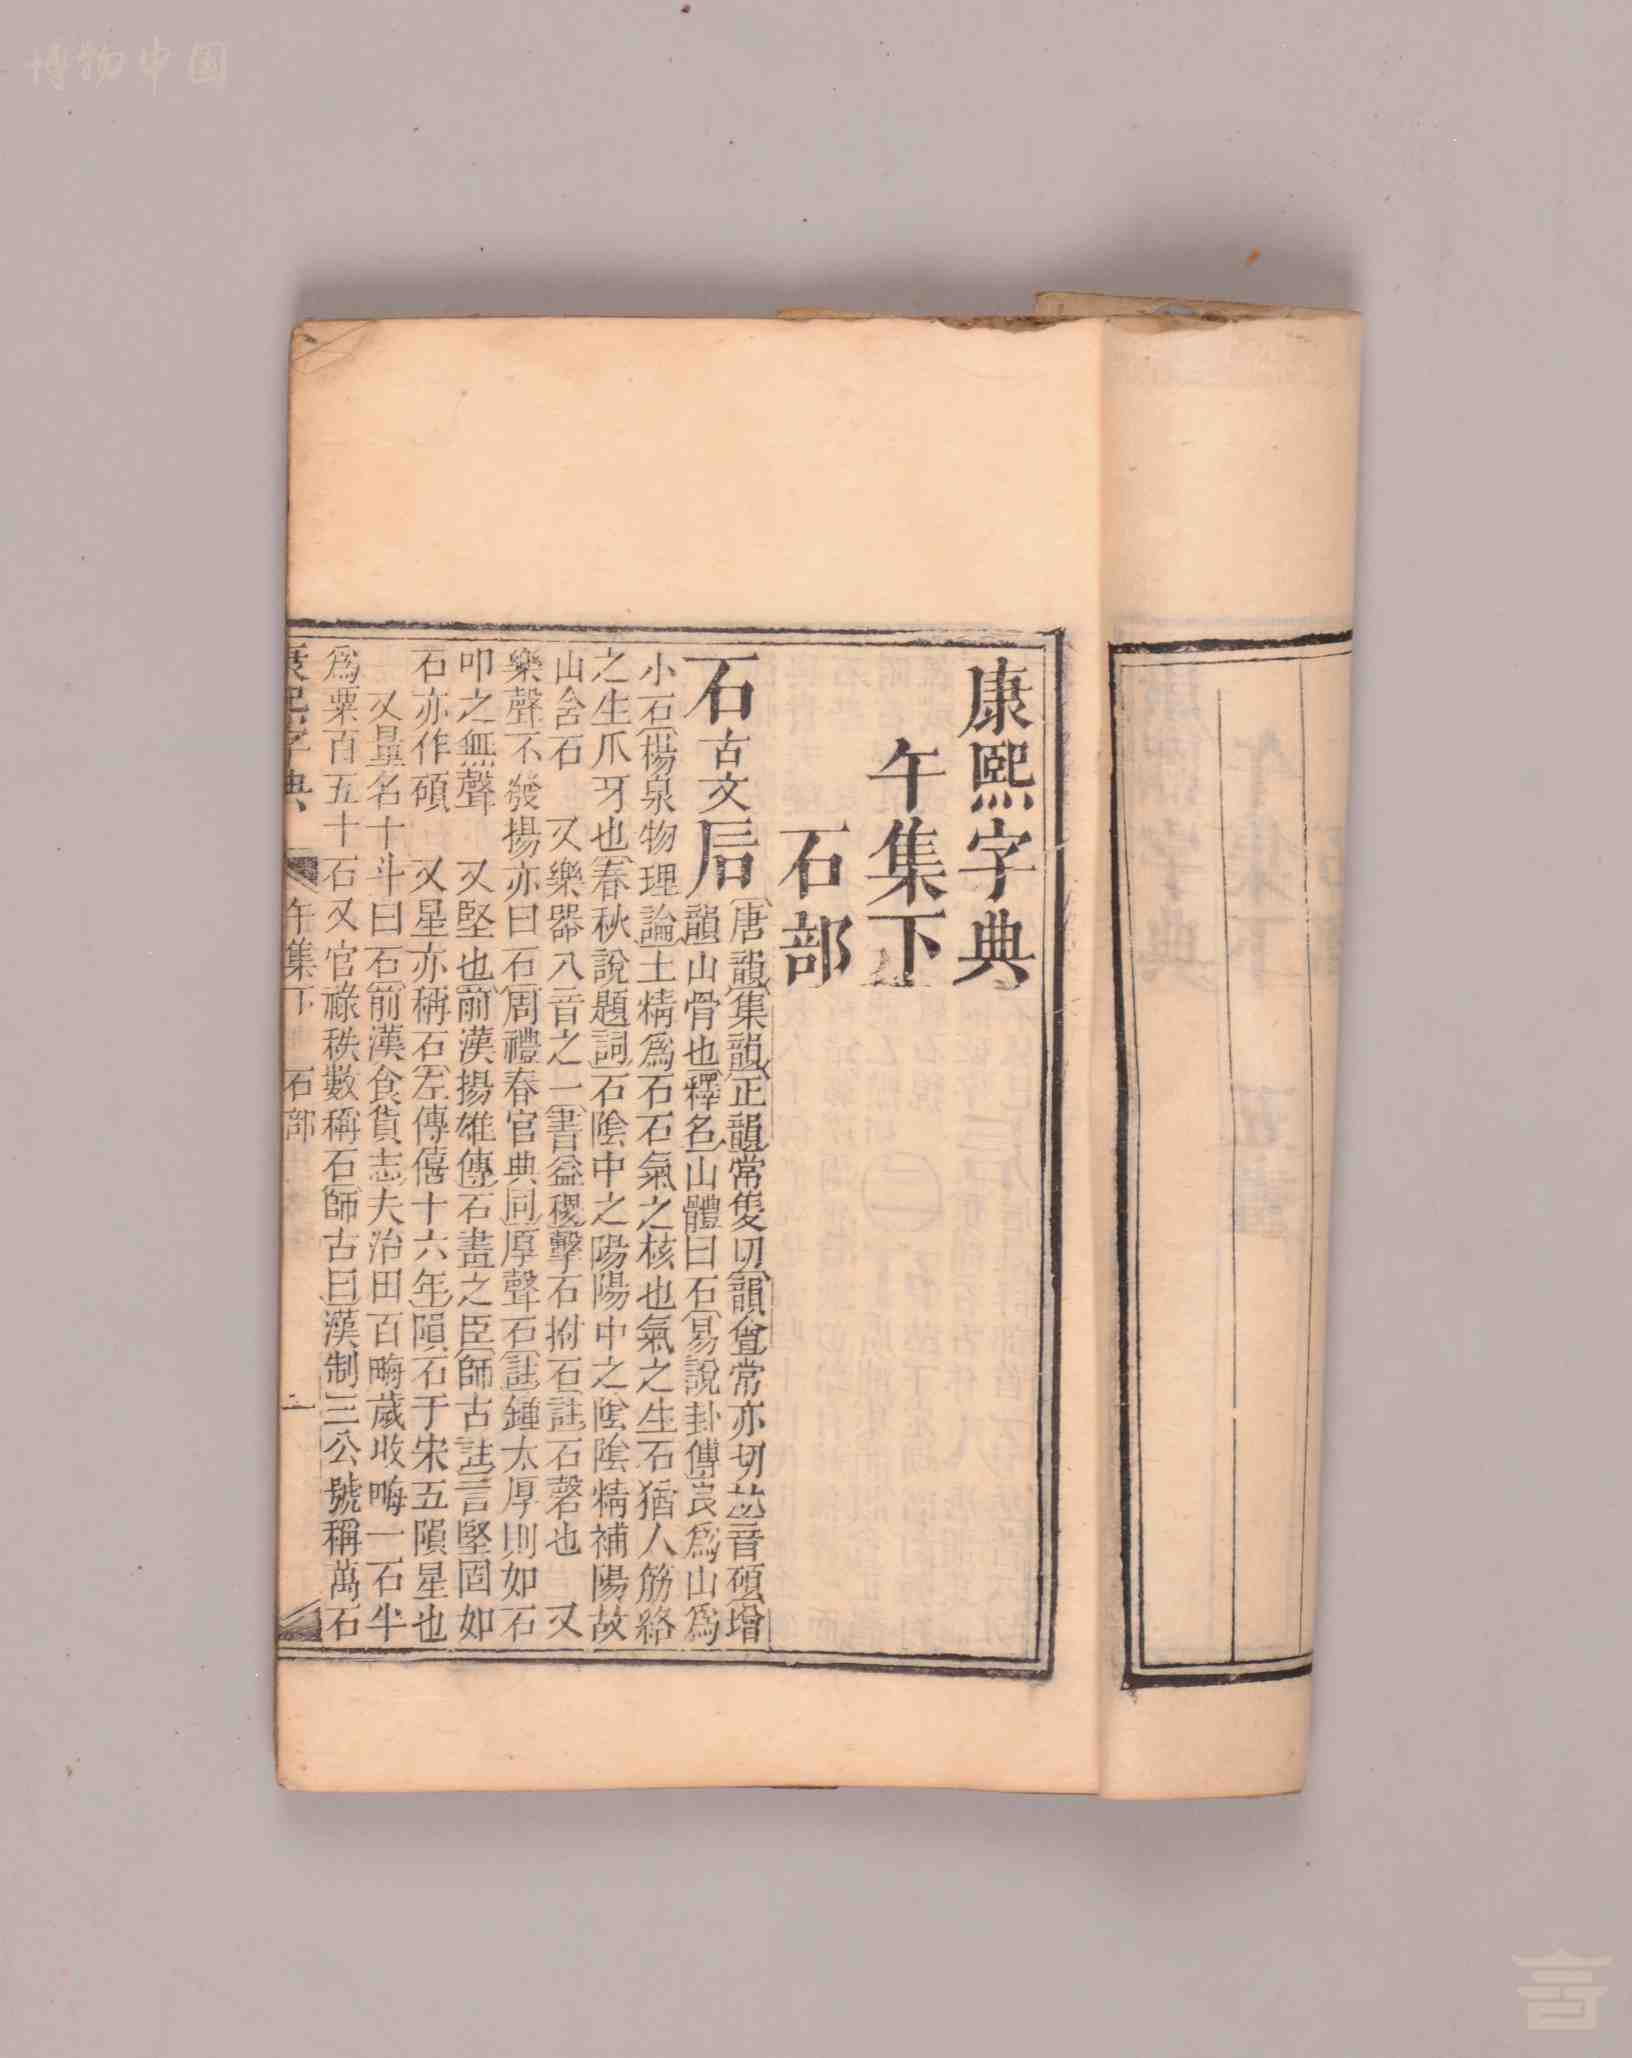 博物中国
康熙字典
午集下
石部
石古文𥐘唐韻集韻正韻常隻切韻會常亦切𠀤音碩增
韻山骨也釋名山體曰石易說卦傳艮爲山爲
小石楊泉物理論土精爲石石氣之核也氣之生石猶人筋絡
之生爪牙也春秋說題詞石陰中之陽陽中之陰陰精補陽故
山含石 又樂器八音之一書益稷擊石拊石註石磬也 又
樂聲不發揚亦曰石周禮春官典同厚聲石註鍾太厚則如石
叩之無聲 又堅也前漢揚雄傳石畫之臣師古註言堅固如
石亦作碩 又星亦稱石左傳僖十六年隕石于宋五隕星也
又量名十斗曰石前漢食貨志夫治田百畮歲收畮一石半
爲粟百五十石又官祿秩數稱石師古曰漢制三公號稱萬石
康熙字典 午集下 石部 一